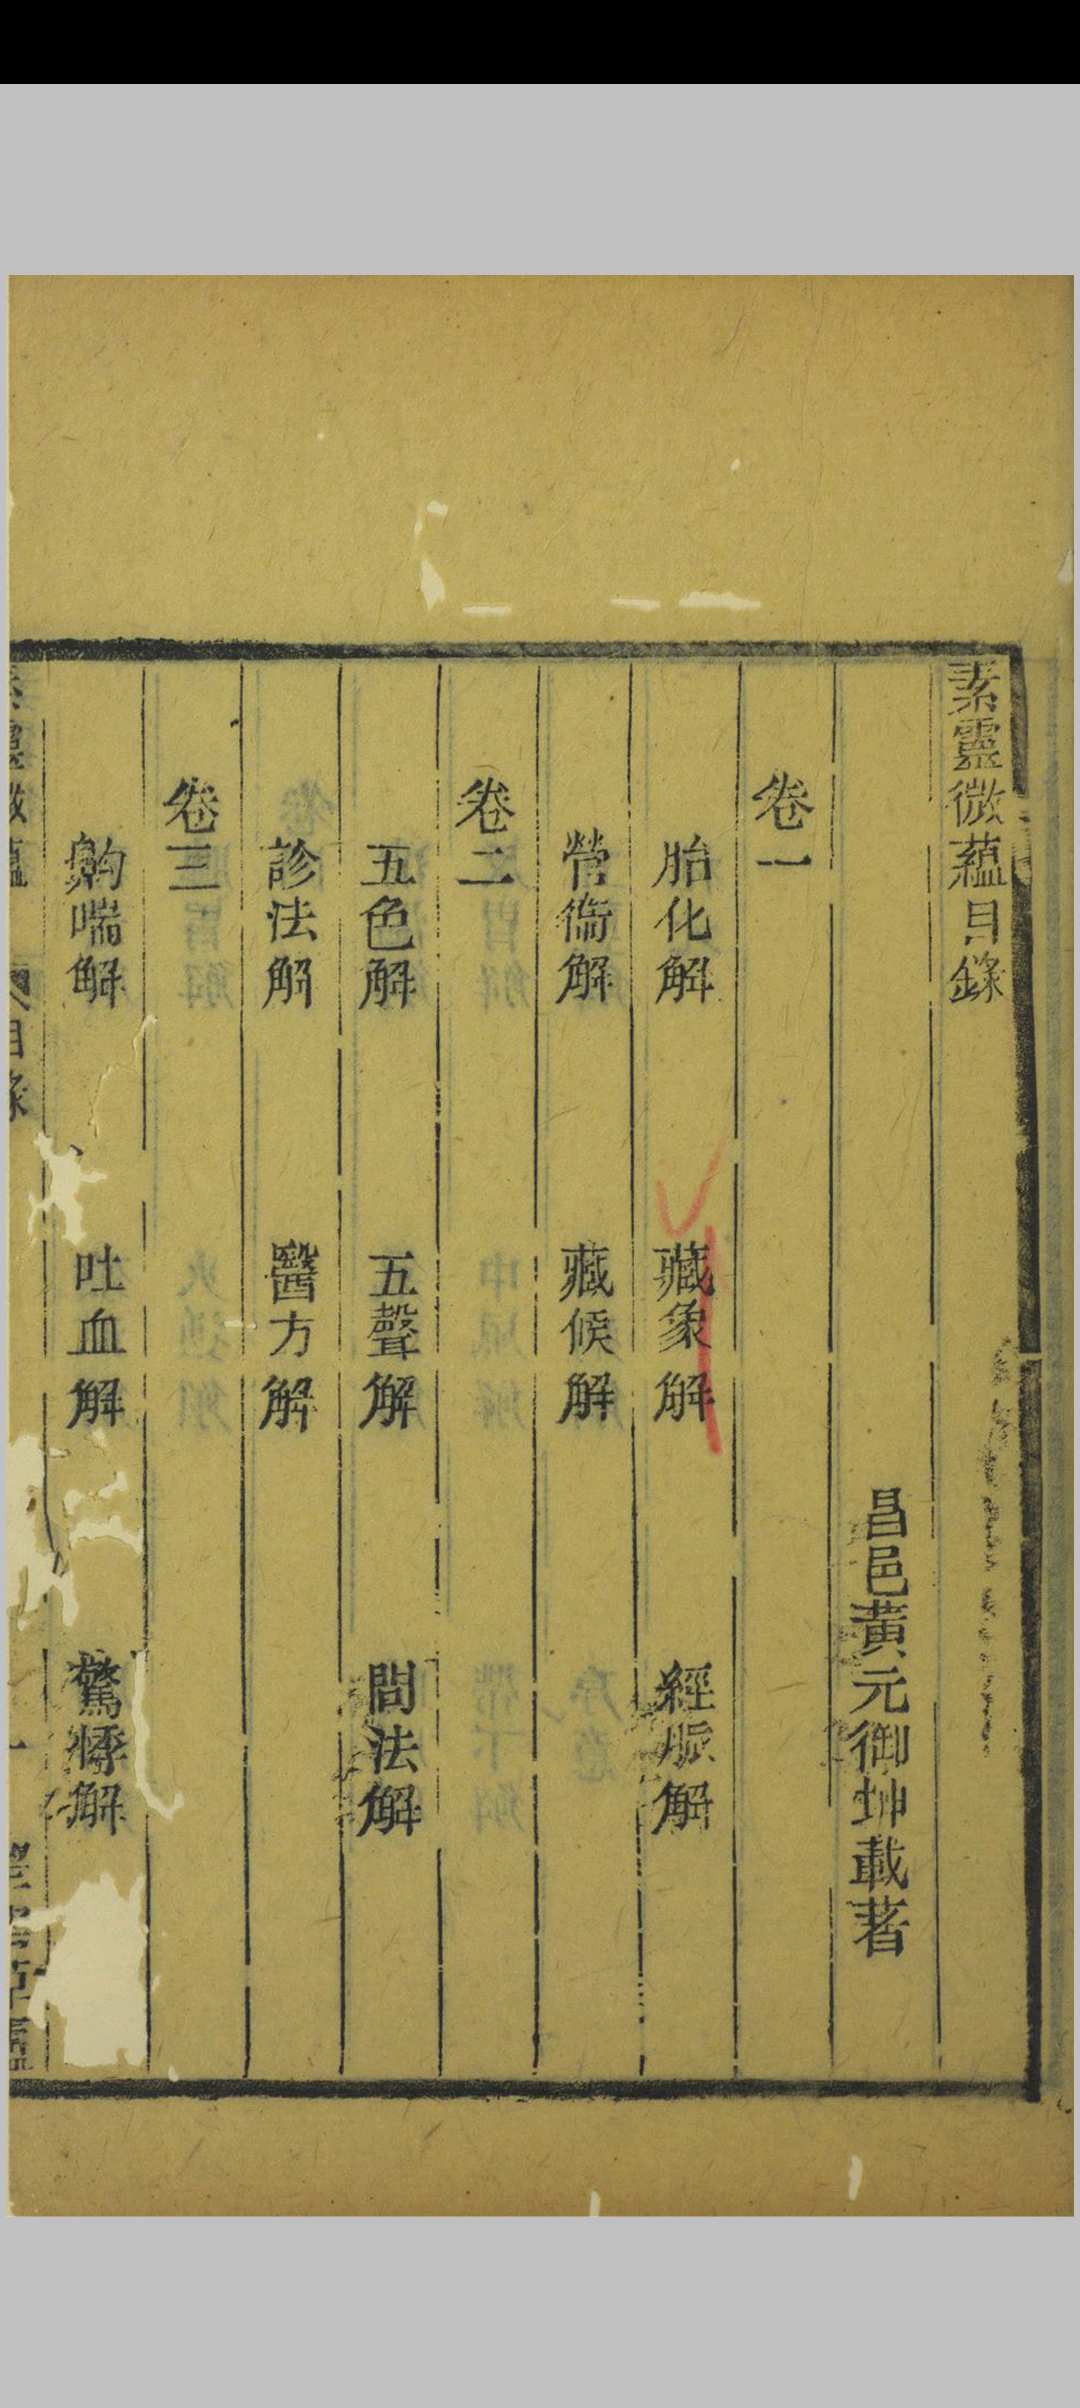 素靈微蘊目錄
昌邑黃元御坤載著
卷一
胎化解 藏象解 經脈解
營衞解 藏候解
卷二
五色解 五聲解 問法解
診法解 醫方解
卷三
齁喘解 吐血解 驚悸解
素靈微蘊 目錄 一